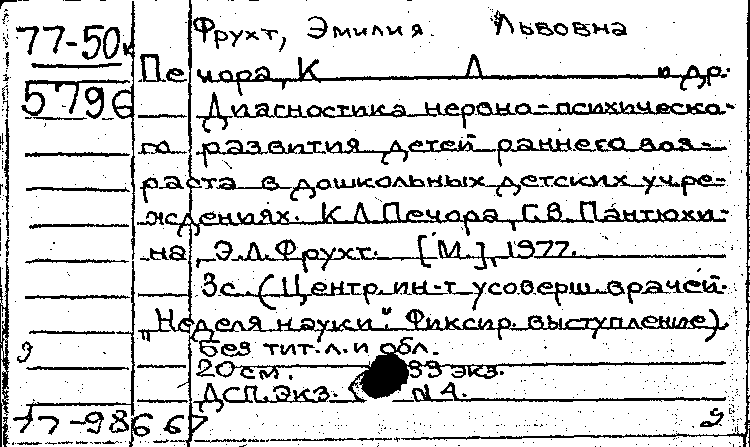 Фрухт, Эмилия Львовна
77-50к
Печора, К Л и др.
5796
Диагностика нервно-психическо-
го развития детей раннего воз-
раста в дошкольных детских учре-
ждениях. К.Л.Печора, Г.В. Пантюхи-
на, Э.Л.Фрухт. [М.], 1977.
3с. (Центр. ин-т усоверш. врачей.
"Неделя науки". Фиксир. выступление).
Без тит. л. и обл.
20 см. 99 экз.
ДСП. Экз. N 4.
77-98667